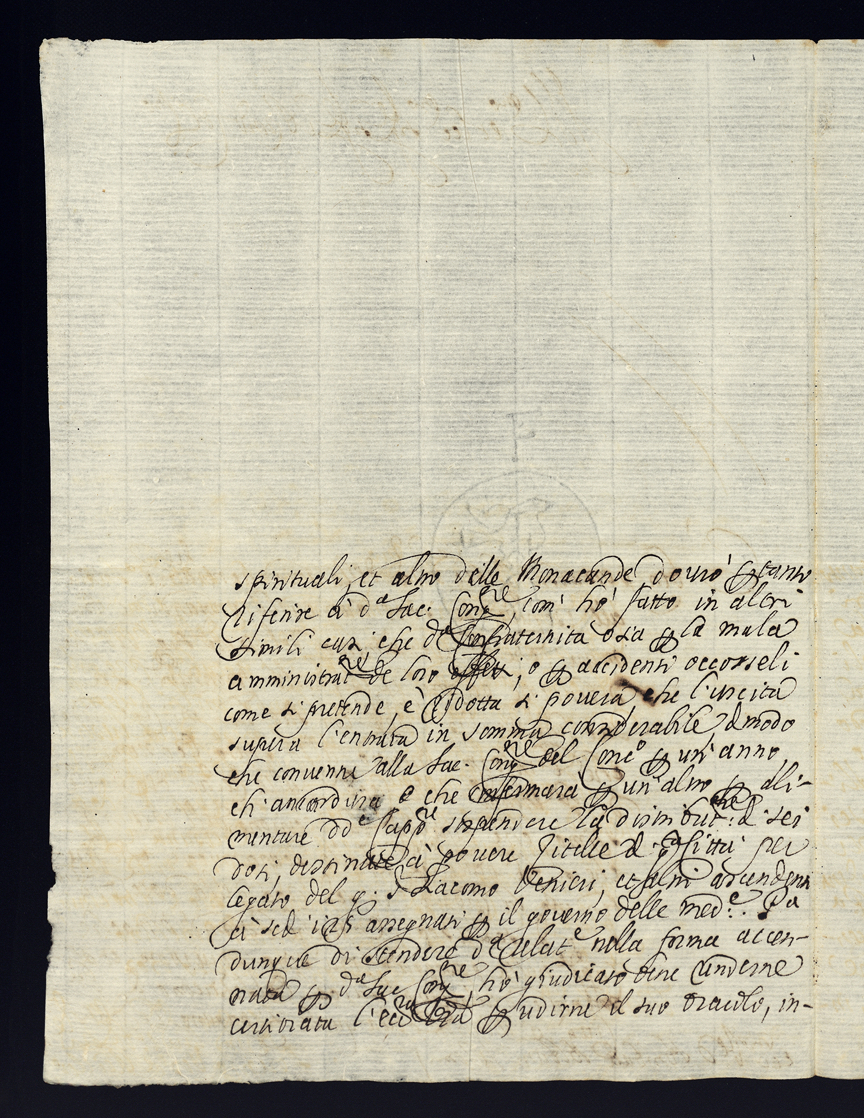 spirituali, et altro delle Monacande dovrò p tanto
riferire à da Sac. Congne com' hò fatto in altri
simili casi, che da Confraternita ò sia p la mala
amministratne de loro effetti, o p accidenti occorseli
come si pretende, è ridotta si povera, che l'uscita
supera l'entrata in somma considerabile, di modo
che convenne alla Sac. Congne del Conco p un' anno,
ch' ancor dura e che confermarà p un' altro p ali-
mentare dd. Capp. sospendere la distributne di sei
doti, destinate à povere Zitelle di qa Città per
legato del q. Giacomo Venieri, et altri ascendenti
à sc.di 125 assegnati p il governo delle mede. Da
dunque di stendere da relate nella forma accen-
nata p da Sac. Congne, hò giudicato bene renderne
certiorata l'Ecc. Vra p udirne il suo oracolo, in-